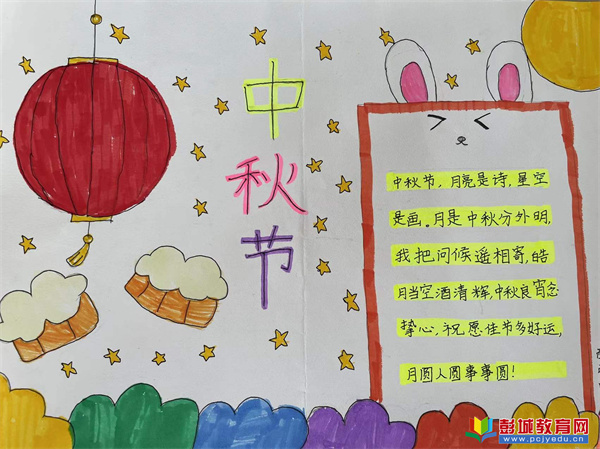 中
秋
节
中秋节，月亮是诗，星空
是画。月是中秋分外明，
我把问候遥相寄，皓
月当空洒清辉，中秋良宵念
挚心，祝愿佳节多好运，
月圆人圆事事圆！
彭城教育网
www.pcjyedu.cn